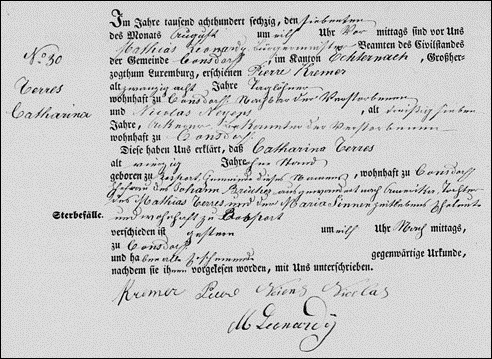 Im Jahre tausend achthundert sechzig, den siebenten
des Monats August um elf Uhr Vor mittags sind vor Uns
Mathias Leonardy Bürgermeister Beamten des Civilstandes
der Gemeinde Consdorf, im Kanton Echternach, Großher-
zogthum Luxemburg, erschienen Pierr Kremer
alt zwanzig acht Jahre Taglöhner
wohnhaft zu Consdorf Nachbar der Verstorbenen
und Nicolas Neyens, alt dreißig sieben
Jahre, Ackerer Bekannter der Verstorbenen
wohnhaft zu Consdorf
Diese haben Uns erklärt, daß Catharina Terres
alt vierzig Jahre Stand
geboren zu Rosport Gemeinde dieses Namens, wohnhaft zu Consdorf
Ehefrau des Johann Brücher ausgewandert nach Amerika, Tochter
des Mathias Terres und der Maria Sinner zeitlebens Eheleute
und wohnhaft zu Rosport
verschieden ist gestern um elf Uhr Nach mittags,
zu Consdorf
und haben alle gegenwärtige Urkunde,
nachdem sie ihnen vorgelesen worden, mit Uns unterschrieben.
Kremer Neiens Nicolas
M Leonardÿ
No 30
Terres
Catharina
Sterbefälle.